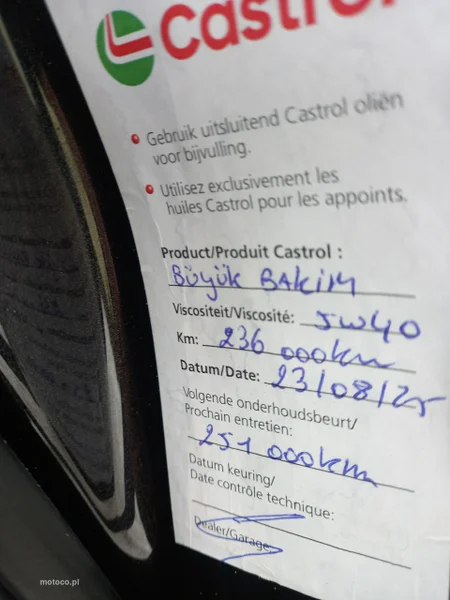 Castrol
• Gebruik uitsluitend Castrol oliën
voor bijvulling.
• Utilisez exclusivement les
huiles Castrol pour les appoints.
Product/Produit Castrol :
BÜYÜK BAKIM
Viscositeit/Viscosité: 5W40
Km: 236 000km
Datum/Date: 23/08/25
Volgende onderhoudsbeurt/
Prochain entretien:
251 000km
Datum keuring/
Date contrôle technique:
Dealer/Garage
motoco.pl